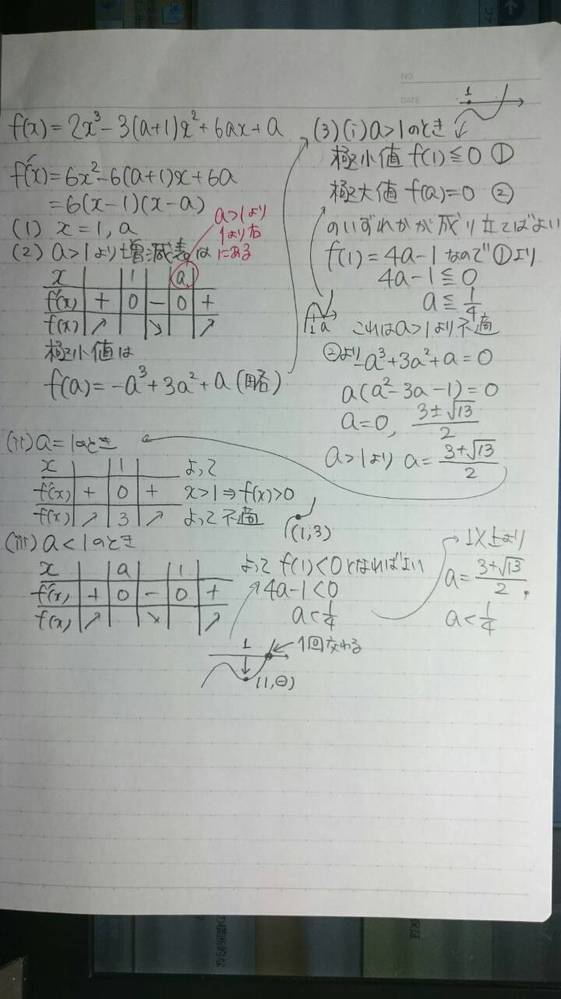 NO.
DATE
f(x) = 2x³ - 3(a+1)x² + 6ax + a
f'(x) = 6x² - 6(a+1)x + 6a
= 6(x-1)(x-a)
(1) x = 1, a
(2) a>1より増減表は
a>1より
1より右
にある
x 1 a
f'(x) + 0 - 0 +
f(x) ↗ ↘ ↗
極小値は
f(a) = -a³ + 3a² + a (略)
(3) (i) a>1のとき
1
極小値 f(1) ≦ 0 ①
極大値 f(a) = 0 ②
のいずれかが成り立てばよい
f(1) = 4a-1 なので ①より
4a-1 ≦ 0
a ≦ 1/4
1 a
これは a>1より不適
②より -a³ + 3a² + a = 0
a(a² - 3a - 1) = 0
a = 0, (3±√13)/2
a>1より a = (3+√13)/2
(ii) a=1のとき
x 1
f'(x) + 0 +
f(x) ↗ 3 ↗
よって
x>1 ⇒ f(x)>0
よって不適
(1,3)
(iii) a<1のとき
x a 1
f'(x) + 0 - 0 +
f(x) ↗ ↘ ↗
よって f(1)<0 となればよい
4a-1<0
a<1/4
1
1回交わる
(1,⊖)
以上より
a = (3+√13)/2,
a<1/4